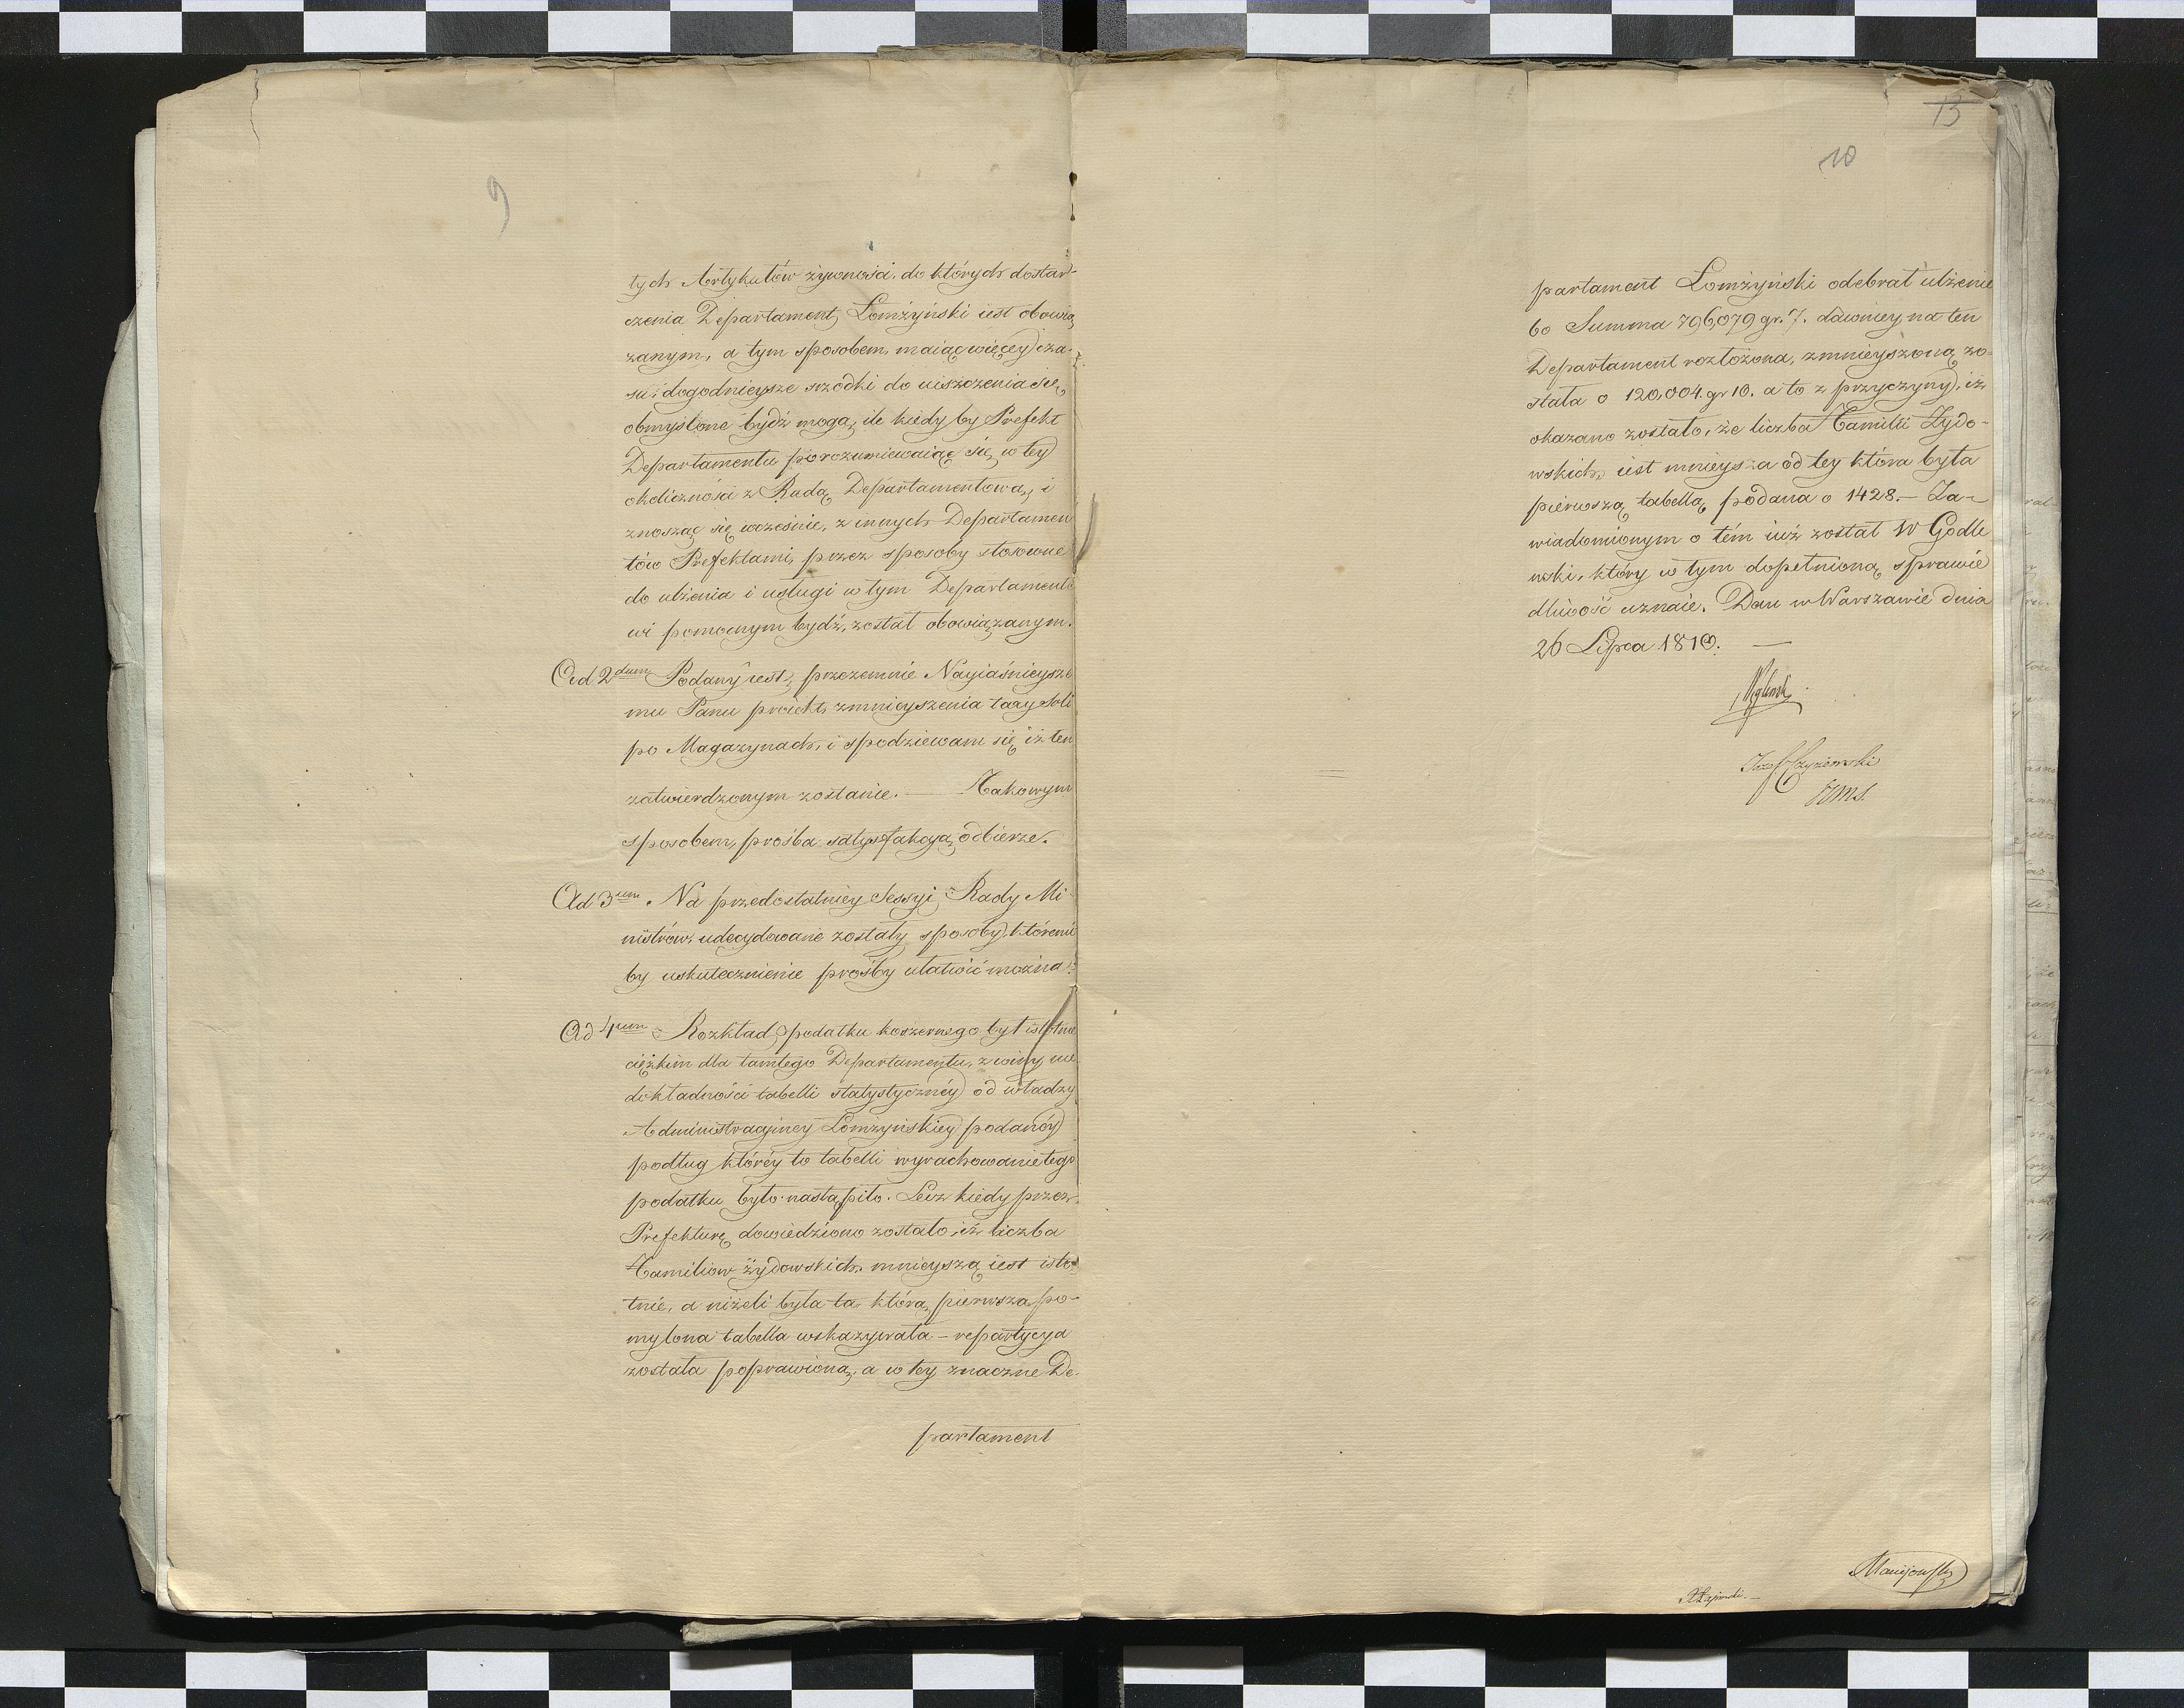 9
tych Artykułów żywności, do których dostar-
czenia Departament Łomżyński iest obowią
zanym, a tym sposobem, maiąc więcey cza-
su i dogodnieysze srzodki do uiszczenia się,
obmyślone bydź mogą, ile kiedy by Prefekt
Departamentu porozumiewaiąc się w tey
okoliczności z Radą Departamentową, i
znosząc się wcześnie, z innych Departamen
tów Prefektami, przez sposoby stosowne
do ulżenia i usługi w tym Departamento
wi pomocnym bydź, został obowiązanym.
Ad 2dum Podany iest, przezemnie Nayiaśnieysze
mu Panu proiekt, zmnieyszenia taxy soli
po Magazynach, i spodziewam się iż ten
zatwierdzonym zostanie. — Takowym
sposobem, prośba satysfakcyą odbierze.
Ad 3um. Na przedostatniey Sessyi Rady Mi-
nistrów, udecydowane zostały sposoby, któremi
by uskutecznienie prośby ułatwić można.
Ad 4um Rozkład podatku koszernego był istotnie
ciężkim dla tamtego Departamentu, z winy nie
dokładności tabelli statystyczney od władzy
Administracyiney Łomżyńskiey podaney
podług którey to tabelli wyrachowanie tego
podatku było nastąpiło. Lecz kiedy przez
Prefekturę dowiedziono zostało, iż liczba
Familiow żydowskich, mnieyszą iest isto
tnie, a niżeli była ta którą pierwsza po-
mylona tabella wskazywała – repartycya
została poprawiona, a w tey znaczne De-
partament
13
10
partament Łomżyński odebrał ulżenie
bo Summa 796,079 gr. 7. dawniey na ten
Departament rozłożona, zmnieyszoną zo-
stała o 120,004. gr 10. a to z przyczyny, iż
okazano zostało, że liczba Familii Żydo-
wskich, iest mnieysza od tey która była
pierwszą tabellą podana o 1428. – Za-
wiadomionym o tém iuż został W Godle
wski, który w tym dopełnioną sprawie
dliwość uznaie. Dan w Warszawie dnia
26 Lipca 1810. —
Węgleński